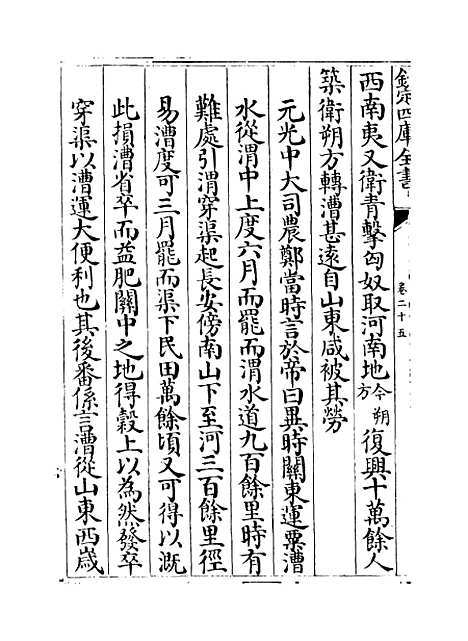 欽定四庫全書
卷二十五
西南夷又衛青擊匈奴取河南地今朔方復興十萬餘人
築衛朔方轉漕甚遠自山東咸被其勞
元光中大司農鄭當時言於帝曰異時關東運粟漕
水從渭中上度六月而罷而渭水道九百餘里時有
難處引渭穿渠起長安傍南山下至河三百餘里徑
易漕度可三月罷而渠下民田萬餘頃又可得以溉
此損漕省卒而益肥關中之地得穀上以為然發卒
穿渠以漕運大便利也其後番係言漕從山東西歲